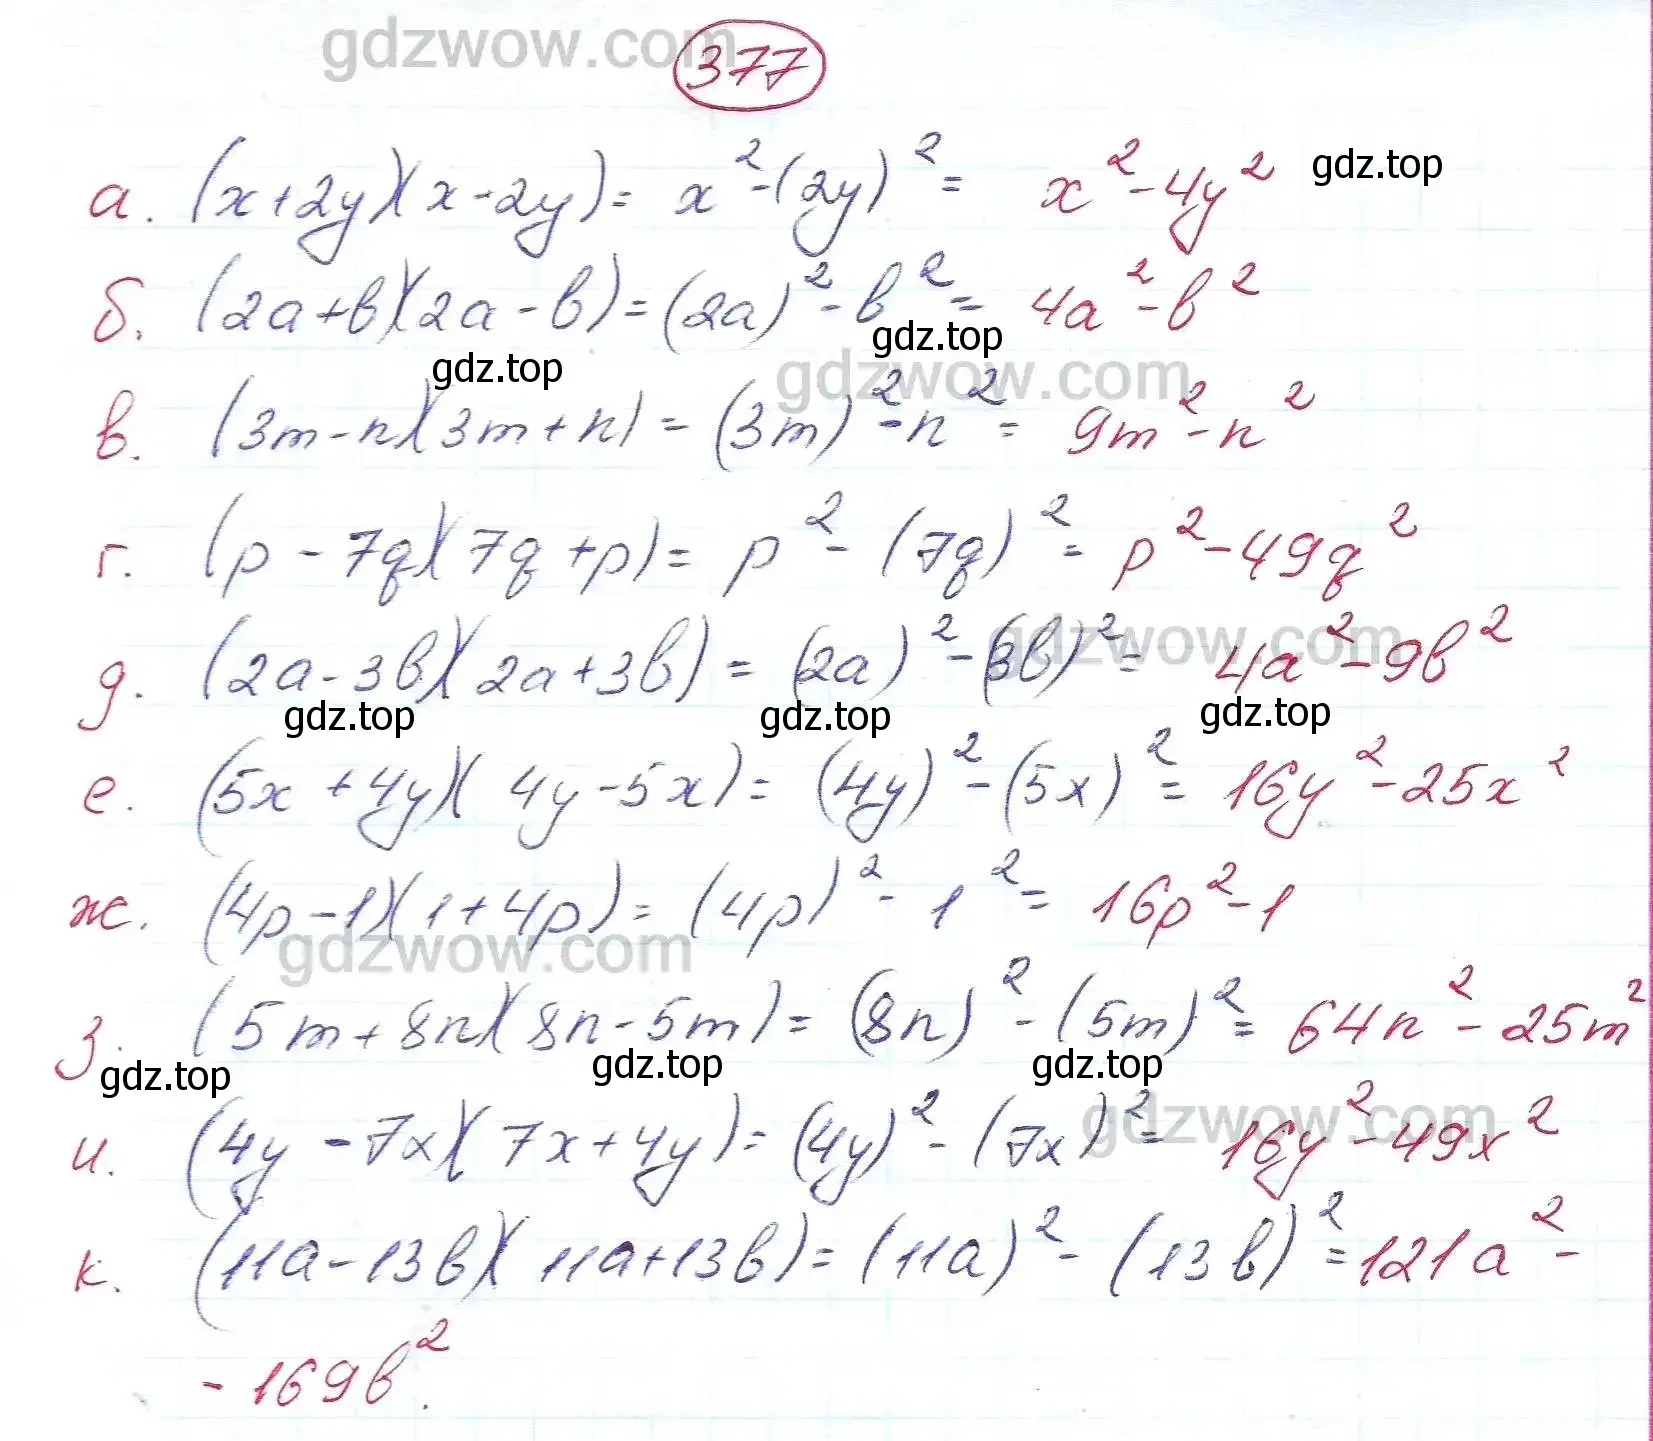 gdzwow.com
377
а. (x+2y)(x-2y)= x²-(2y)²= x²-4y² gdz.top
б. (2a+b)(2a-b)=(2a)²-b²= 4a²-b²
gdz.top gdz.top gdzwow.com
в. (3m-n)(3m+n)=(3m)²-n²= 9m²-n²
г. (p-7q)(7q+p)= p²-(7q)²= p²-49q²
gdzwow.com
д. (2a-3b)(2a+3b)=(2a)²-(3b)²= 4a²-9b²
gdz.top gdz.top gdz.top
е. (5x+4y)(4y-5x)=(4y)²-(5x)²= 16y²-25x²
ж. (4p-1)(1+4p)=(4p)²-1²= 16p²-1
gdzwow.com
з. (5m+8n)(8n-5m)=(8n)²-(5m)²= 64n²-25m²
gdz.top gdz.top gdz.top
gdzwow.com
и. (4y-7x)(7x+4y)=(4y)²-(7x)²= 16y²-49x²
к. (11a-13b)(11a+13b)=(11a)²-(13b)²=121a²-
-169b².